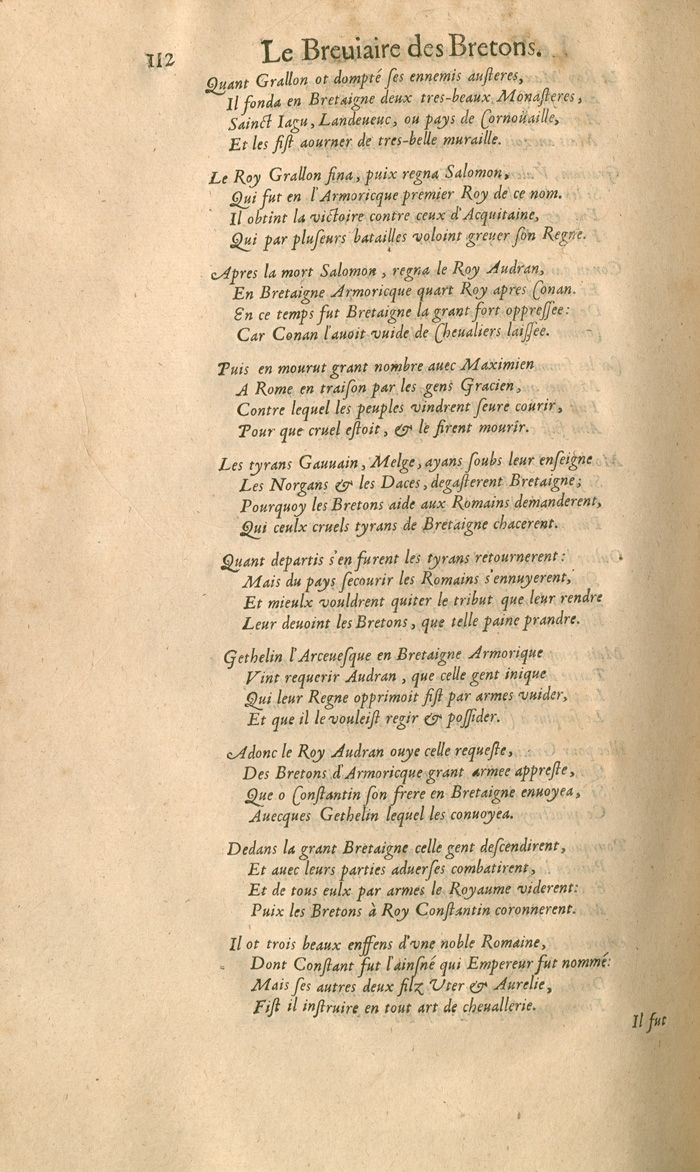 112
Le Breuiaire des Bretons.
Quant Grallon ot dompté ſes ennemis auſteres,
Il fonda en Bretaigne deux tres-beaux Monaſteres,
Sainct Iagu, Landeueuc, ou pays de Cornoüaille,
Et les fiſt aourner de tres-belle muraille.
Le Roy Grallon fina, puix regna Salomon,
Qui fut en l'Armoricque premier Roy de ce nom.
Il obtint la victoire contre ceux d'Acquitaine,
Qui par pluſeurs batailles voloint greuer ſon Regne.
Apres la mort Salomon, regna le Roy Audran,
En Bretaigne Armoricque quart Roy apres Conan.
En ce temps fut Bretaigne la grant fort oppreſſee:
Car Conan l'auoit vuide de Cheualiers laiſſee.
Puis en mourut grant nombre auec Maximien
A Rome en traiſon par les gens Gracien,
Contre lequel les peuples vindrent ſeure courir,
Pour que cruel eſtoit, & le firent mourir.
Les tyrans Gauuain, Melge, ayans ſoubs leur enſeigne
Les Norgans & les Daces, degaſterent Bretaigne;
Pourquoy les Bretons aide aux Romains demanderent,
Qui ceulx cruels tyrans de Bretaigne chacerent.
Quant departis s'en furent les tyrans retournerent:
Mais du pays ſecourir les Romains s'ennuyerent,
Et mieulx vouldrent quiter le tribut que leur rendre
Leur deuoint les Bretons, que telle paine prandre.
Gethelin l'Arceueſque en Bretaigne Armorique
Vint requerir Audran, que celle gent inique
Qui leur Regne opprimoit fiſt par armes vuider,
Et que il le vouleiſt regir & poſſider.
Adonc le Roy Audran ouye celle requeſte,
Des Bretons d'Armoricque grant armee appreſte,
Que o Conſtantin ſon frere en Bretaigne enuoyea,
Auecques Gethelin lequel les conuoyea.
Dedans la grant Bretaigne celle gent deſcendirent,
Et auec leurs parties aduerſes combatirent,
Et de tous eulx par armes le Royaume viderent:
Puix les Bretons à Roy Conſtantin coronnerent.
Il ot trois beaux enffens d'vne noble Romaine,
Dont Conſtant fut l'ainſné qui Empereur fut nommé:
Mais ſes autres deux filz Vter & Aurelie,
Fiſt il inſtruire en tout art de cheuallerie.
Il fut